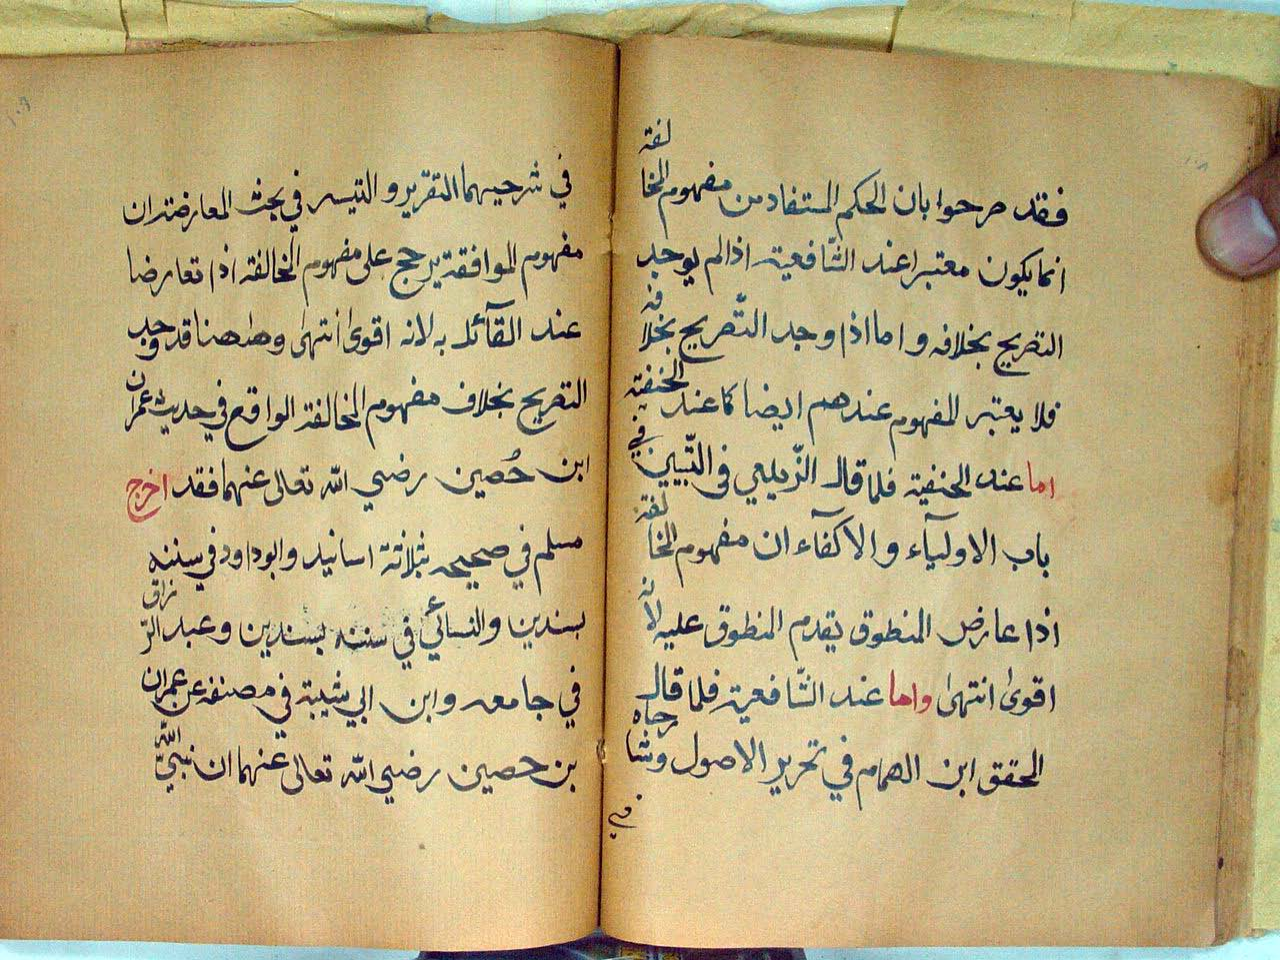 فقد صرحوا بان الحكم المستفاد من مفهوم المخالفة
انما يكون معتبرا عند الشّافعية اذا لم يوجد
التصريح بخلافه واما اذا وجد التّصريح بخلافه
فلا يعتبر المفهوم عندهم ايضا كما عند الحنفية
اما عند الحنفية فلما قال الزّيلعي في التّبيين في
باب الاولياء والاكفاء ان مفهوم المخالفة
اذا عارض المنطوق يقدم المنطوق عليه لانه
اقوى انتهى واما عند الشّافعية فلما قال
المحقق ابن الهمام في تحرير الاصول وشارحاه
في
في شرحيهما التقرير و التيسير في بحث المعارضة ان
مفهوم الموافقة يرجح على مفهوم المخالفة اذا تعارضا
عند القآئل به لانه اقوى انتهى وههنا قد وجد
التصريح بخلاف مفهوم المخالفة الواقع في حديث عمران
ابن حُصين رضي الله تعالى عنهما فقد اخرج
مسلم في صحيحه بثلاثة اسانيد وابوداود في سننه
بسندين والنسائي في سننه بسندين وعبد الرّزاق
في جامعه وابن ابي شيبة في مصنفه عن عمران
بن حصين رضي الله تعالى عنهما ان نبيّ الله